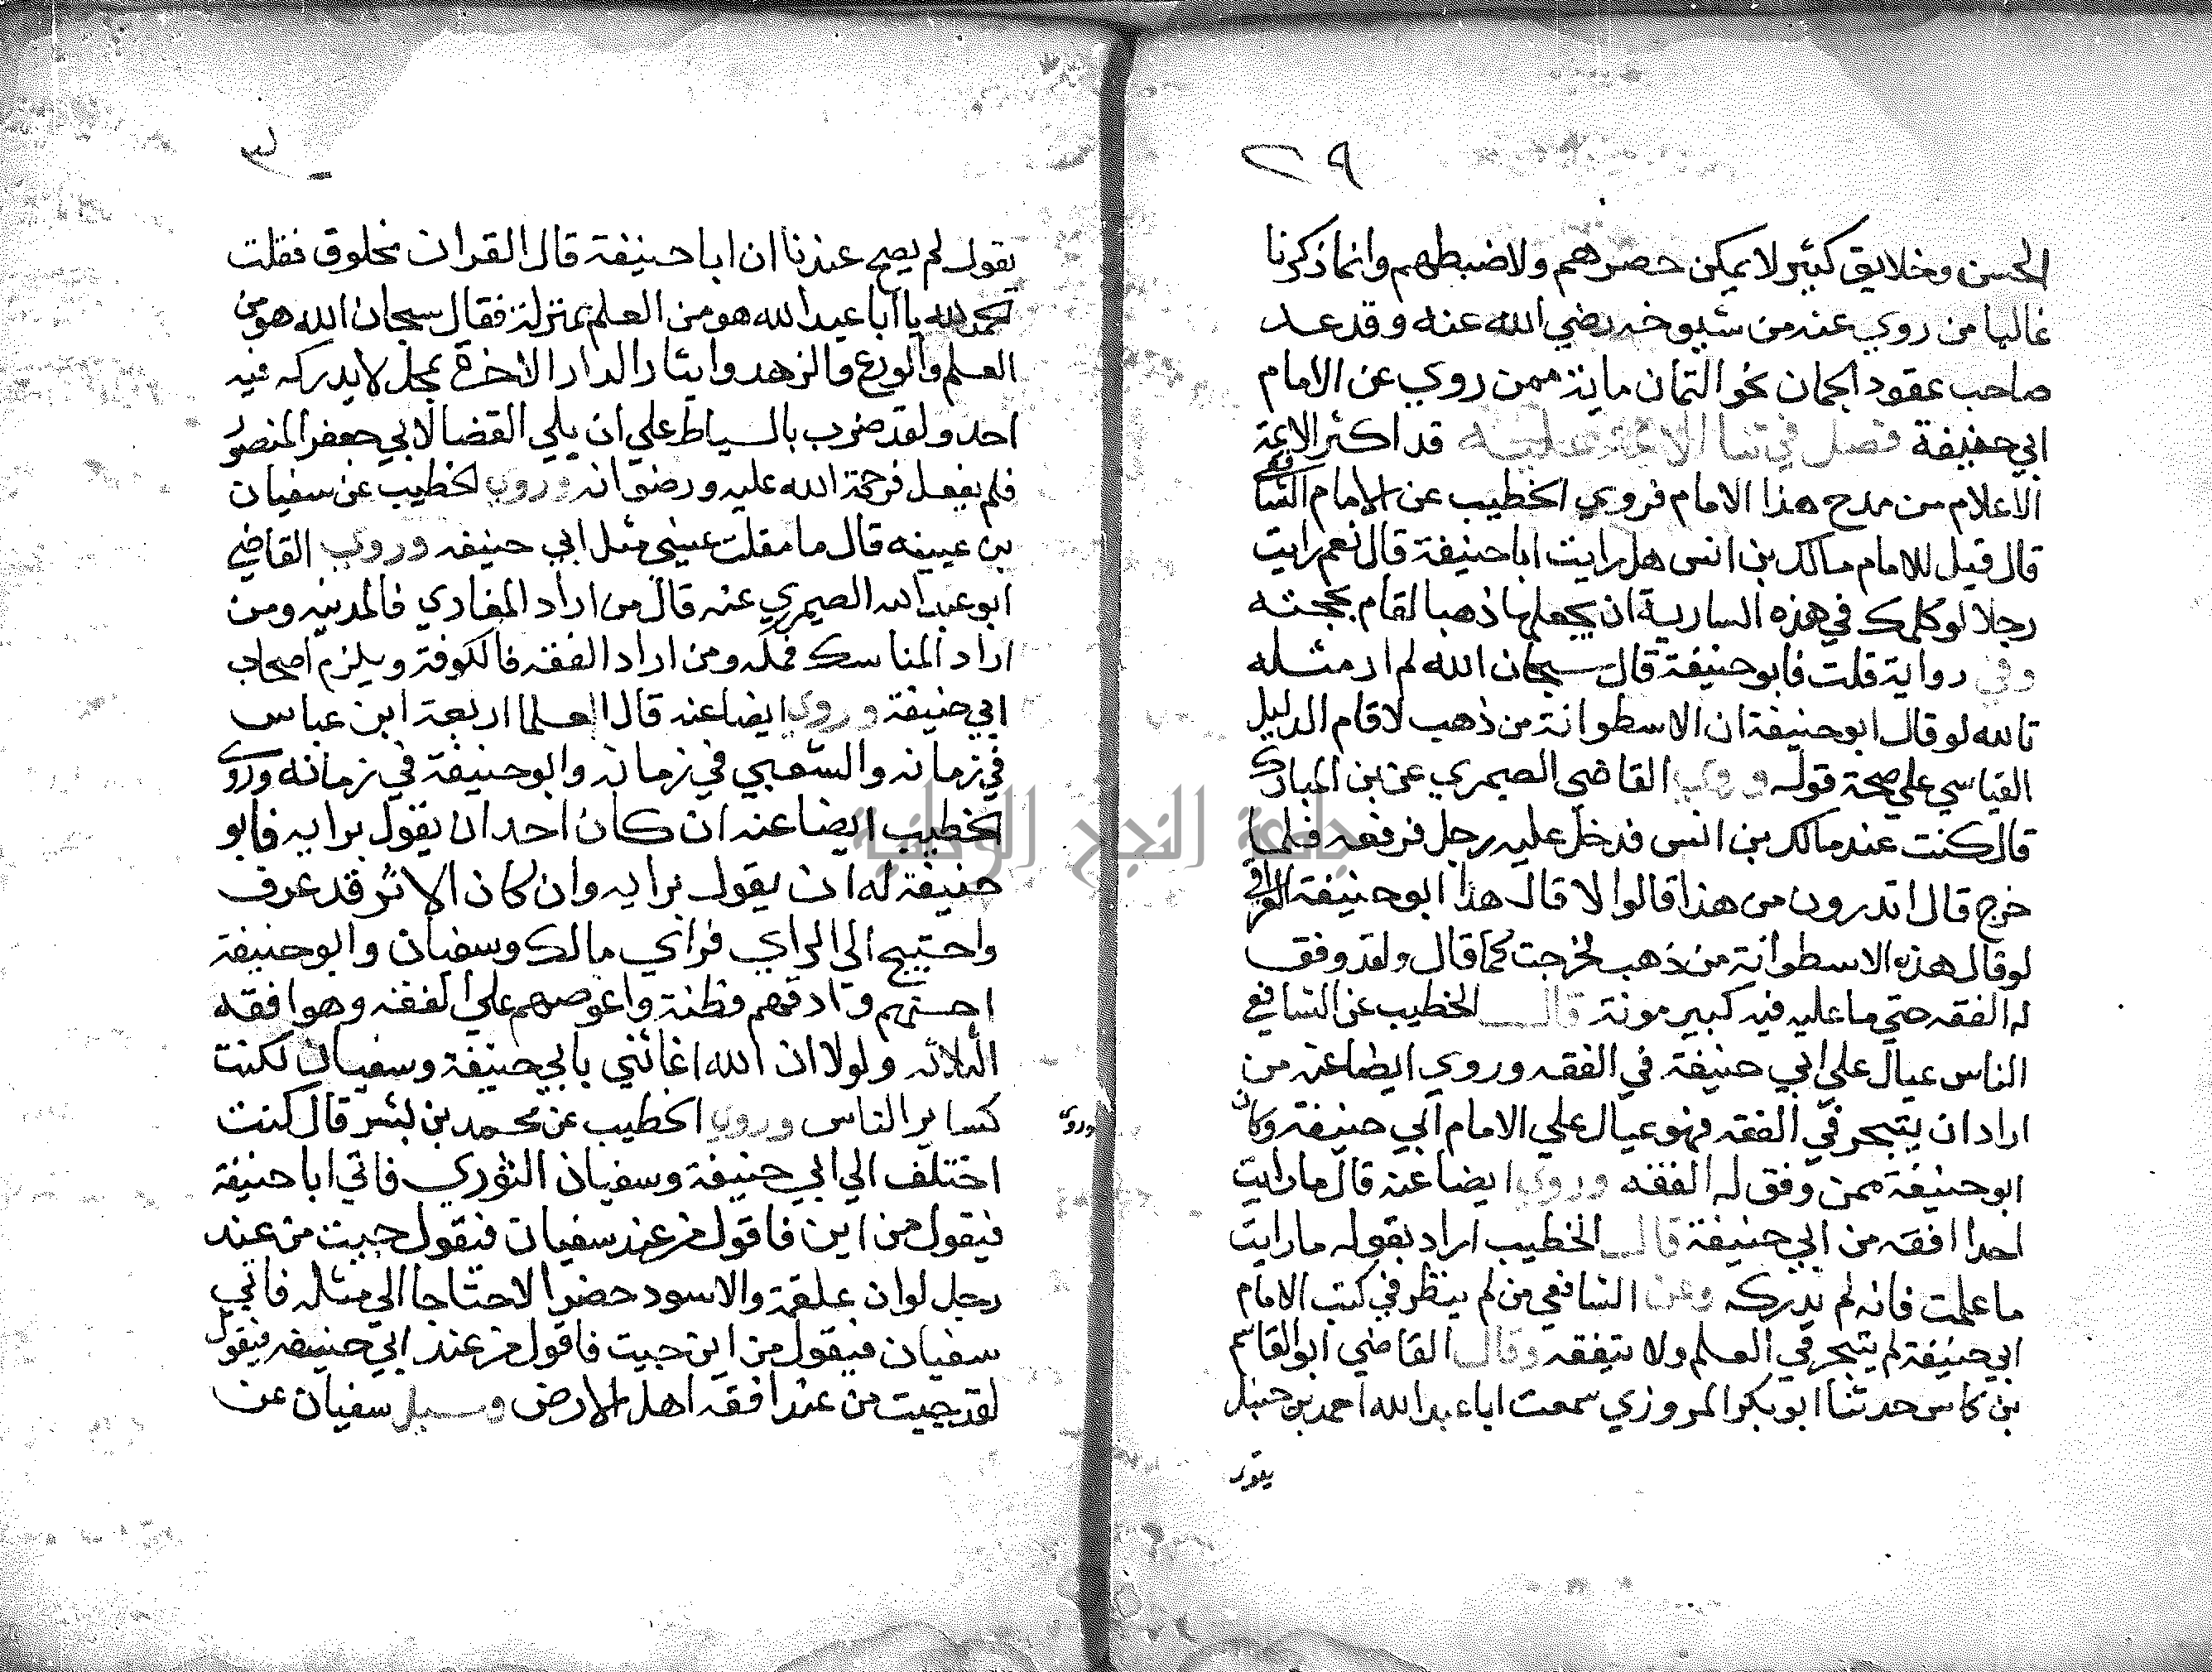 ٢٩
الحسن وخلايق كثير لا يمكن حصرهم ولا ضبطهم وانما ذكرنا
غالبا من روي عنه من شيوخه رضي الله عنه وقد عد
صاحب عقود الجمان نحو الثمان ماية ممن روي عن الامام
ابي حنيفة فصل في ثنا الائمة عليه قد اكثر الائمة
الاعلام من مدح هذا الامام فروي الخطيب عن الامام الشافعي
قال قيل للامام مالك بن انس هل رايت ابا حنيفة قال نعم رايت
رجلا لو كلمك في هذه السارية ان يجعلها ذهبا لقام بحجته
وفي رواية قلت فابو حنيفة قال سبحان الله لم ار مثله
تالله لو قال ابو حنيفة ان الاسطوانة من ذهب لاقام الدليل
القياسي علي صحة قوله وروي القاضي الصيمري عن بن المبارك
قال كنت عند مالك بن انس فدخل عليه رجل فرفعه فلما
خرج قال اتدرون من هذا قالوا لا قال هذا ابو حنيفة العراقي
لو قال هذه الاسطوانة من ذهب لخرجت كما قال ولقد وفق
له الفقه حتي ما عليه فيه كبير مونة قال الخطيب عن الشافعي
الناس عيال علي ابي حنيفة في الفقه وروي ايضا عنه من
اراد ان يتبحر في الفقه فهو عيال علي الامام ابي حنيفة وكان
ابو حنيفة ممن وفق له الفقه وروي ايضا عنه قال ما رايت
احدا افقه من ابي حنيفة قال الخطيب اراد بقوله ما رايت
ما علمت فانه لم يدركه وعن الشافعي من لم ينظر في كتب الامام
ابي حنيفة لم يتبحر في العلم ولا يتفقه وقال القاضي ابو القاسم
بن كاس حدثنا ابو بكر المروزي سمعت ابا عبد الله احمد بن حنبل
يقول
٣٠
يقول لم يصح عندنا ان ابا حنيفة قال القران مخلوق فقلت
الحمد لله يا ابا عبد الله هو من العلم بمنزلة فقال سبحان الله هو من
العلم والورع والزهد وايثار الدار الاخرة بمحل لا يدركه فيه
احد ولقد ضرب بالسياط علي ان يلي القضا لابي جعفر المنصور
فلم يفعل فرحمة الله عليه ورضوانه وروي الخطيب عن سفيان
بن عيينه قال ما مقلت عيني مثل ابي حنيفه وروي القاضي
ابو عبد الله الصيمري عنه قال من اراد المغازي فالمدينه ومن
اراد المناسك فمكه ومن اراد الفقه فالكوفة ويلزم اصحاب
ابي حنيفة وروي ايضا عنه قال العلما اربعة ابن عباس
في زمانه والشعبي في زمانه وابو حنيفة في زمانه وروي
الخطيب ايضا عنه ان كان احد ان يقول برايه فابو
حنيفة له ان يقول برايه وان كان الاثر قد عرف
واحتيج الي الراي فراي مالك وسفيان وابو حنيفة
احسنهم وادقهم فطنة واغوصهم علي الفقه وهو افقه
الثلاثه ولولا ان الله اغاثني بابي حنيفة وسفيان لكنت
كساير الناس وروي الخطيب عن محمد بن بشر قال كنت
اختلف الي ابي حنيفة وسفيان الثوري فاتي ابا حنيفة
فيقول من اين فاقول من عند سفيان فيقول جيت من عند
رجل لو ان علقمة والاسود حضرا لاحتاجا الي مثله فاتي
سفيان فيقول من اين جيت فاقول من عند ابي حنيفه فيقول
لقد جيت من عند افقه اهل الارض وسيل سفيان عن
وروي
جامعة النجاح الوطنية